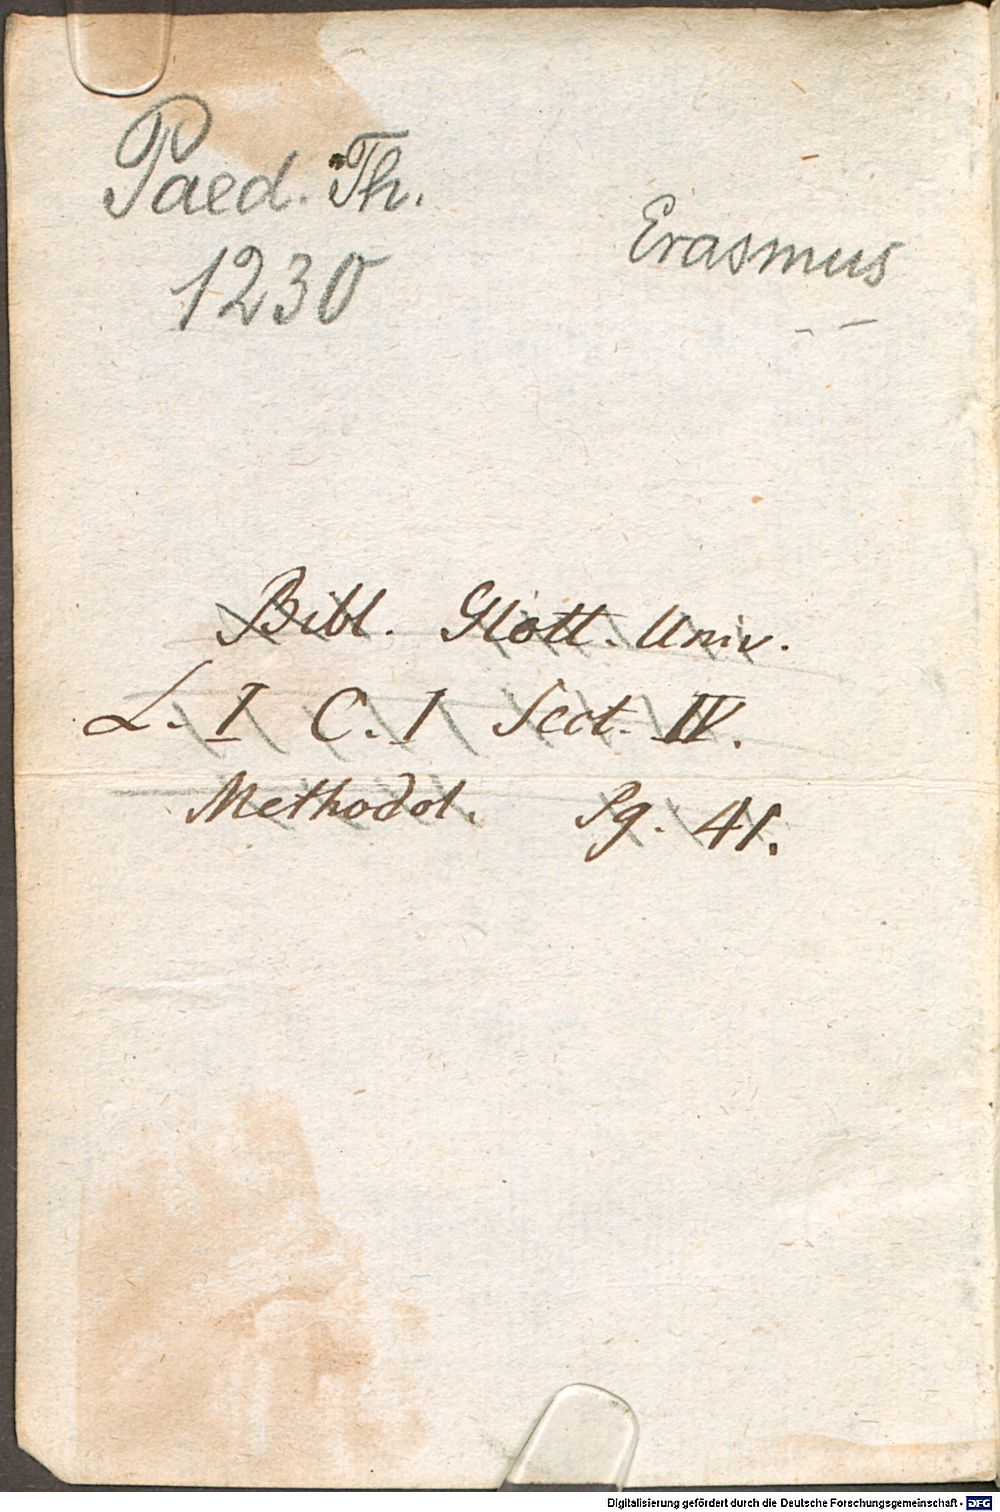 Paed. Th.
1230
Erasmus
Bibl. Glott. Univ.
L. I C. I Sect. IV.
Methodol. Pg. 41.
Digitalisierung gefördert durch die Deutsche Forschungsgemeinschaft - DFG